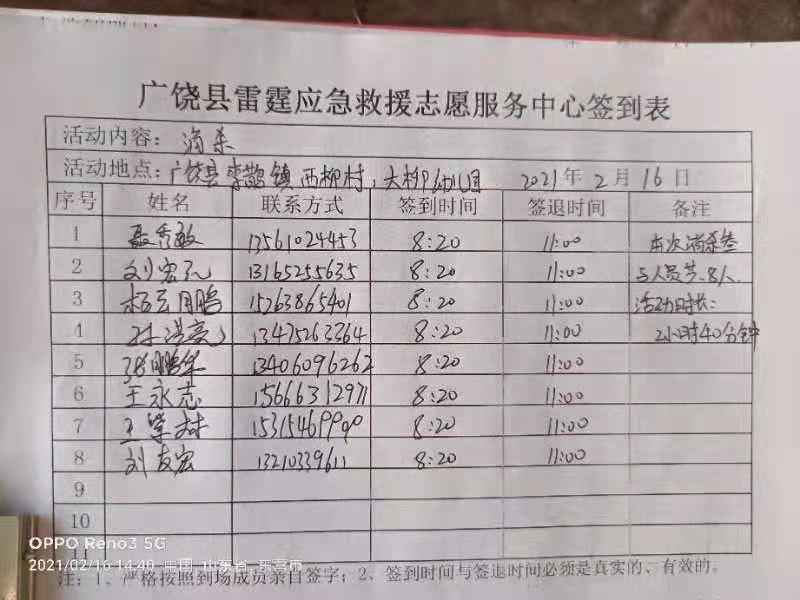 广饶县雷霆应急救援志愿服务中心签到表
活动内容：消杀
活动地点：广饶县李鹊镇西柳村，大柳幼儿园 2021年2月16日
序号 姓名 联系方式 签到时间 签退时间 备注
1 聂秀敏 13561024453 8:20 11:00 本次消杀参
2 刘宏 13165255635 8:20 11:00 与人员共8人.
3 杨云鹏 15263865401 8:20 11:00 活动时长：
4 孙洪亮 13475263364 8:20 11:00 2小时40分钟
5 张鹏华 13406096262 8:20 11:00
6 王永志 15666312971 8:20 11:00
7 王学林 15315469990 8:20 11:00
8 刘友宏 13210339611 8:20 11:00
9
10
11
注：1、严格按照到场成员亲自签字；2、签到时间与签退时间必须是真实的、有效的。
OPPO Reno3 5G
2021/02/16 14:40 中国·山东省·东营市